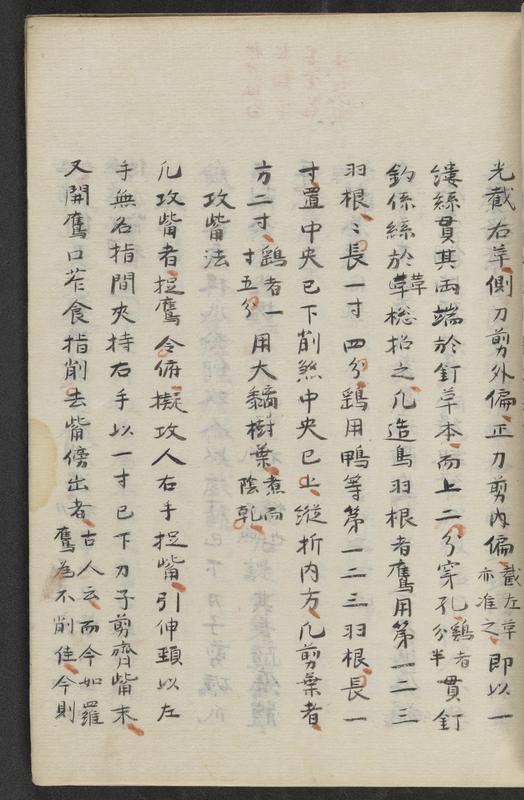 光截右草側刀剪外偏正刀剪内偏截左草亦准之即以一
縷絲貫其両端於釘草本而上二分穿孔鷂者分半貫釘
釣係絲於草総招之凢造鳥羽根者鷹用第一二三
羽根〻長一寸四分鵄用鴨等第一二三羽根長一
寸置中央已下削煞中央已上縦折内方凢剪葉者
方二寸鷂者一寸五分用大黐樹葉煮而陰乾
攻觜法
凢攻觜者捉鷹令俯擬攻人右手捉觜引伸頚以左
手無名指間夾持右手以一寸已下刀子剪齊觜末
又開鷹口苲食指削去觜傍出者古人云而今如羅鷹為不削佳今則